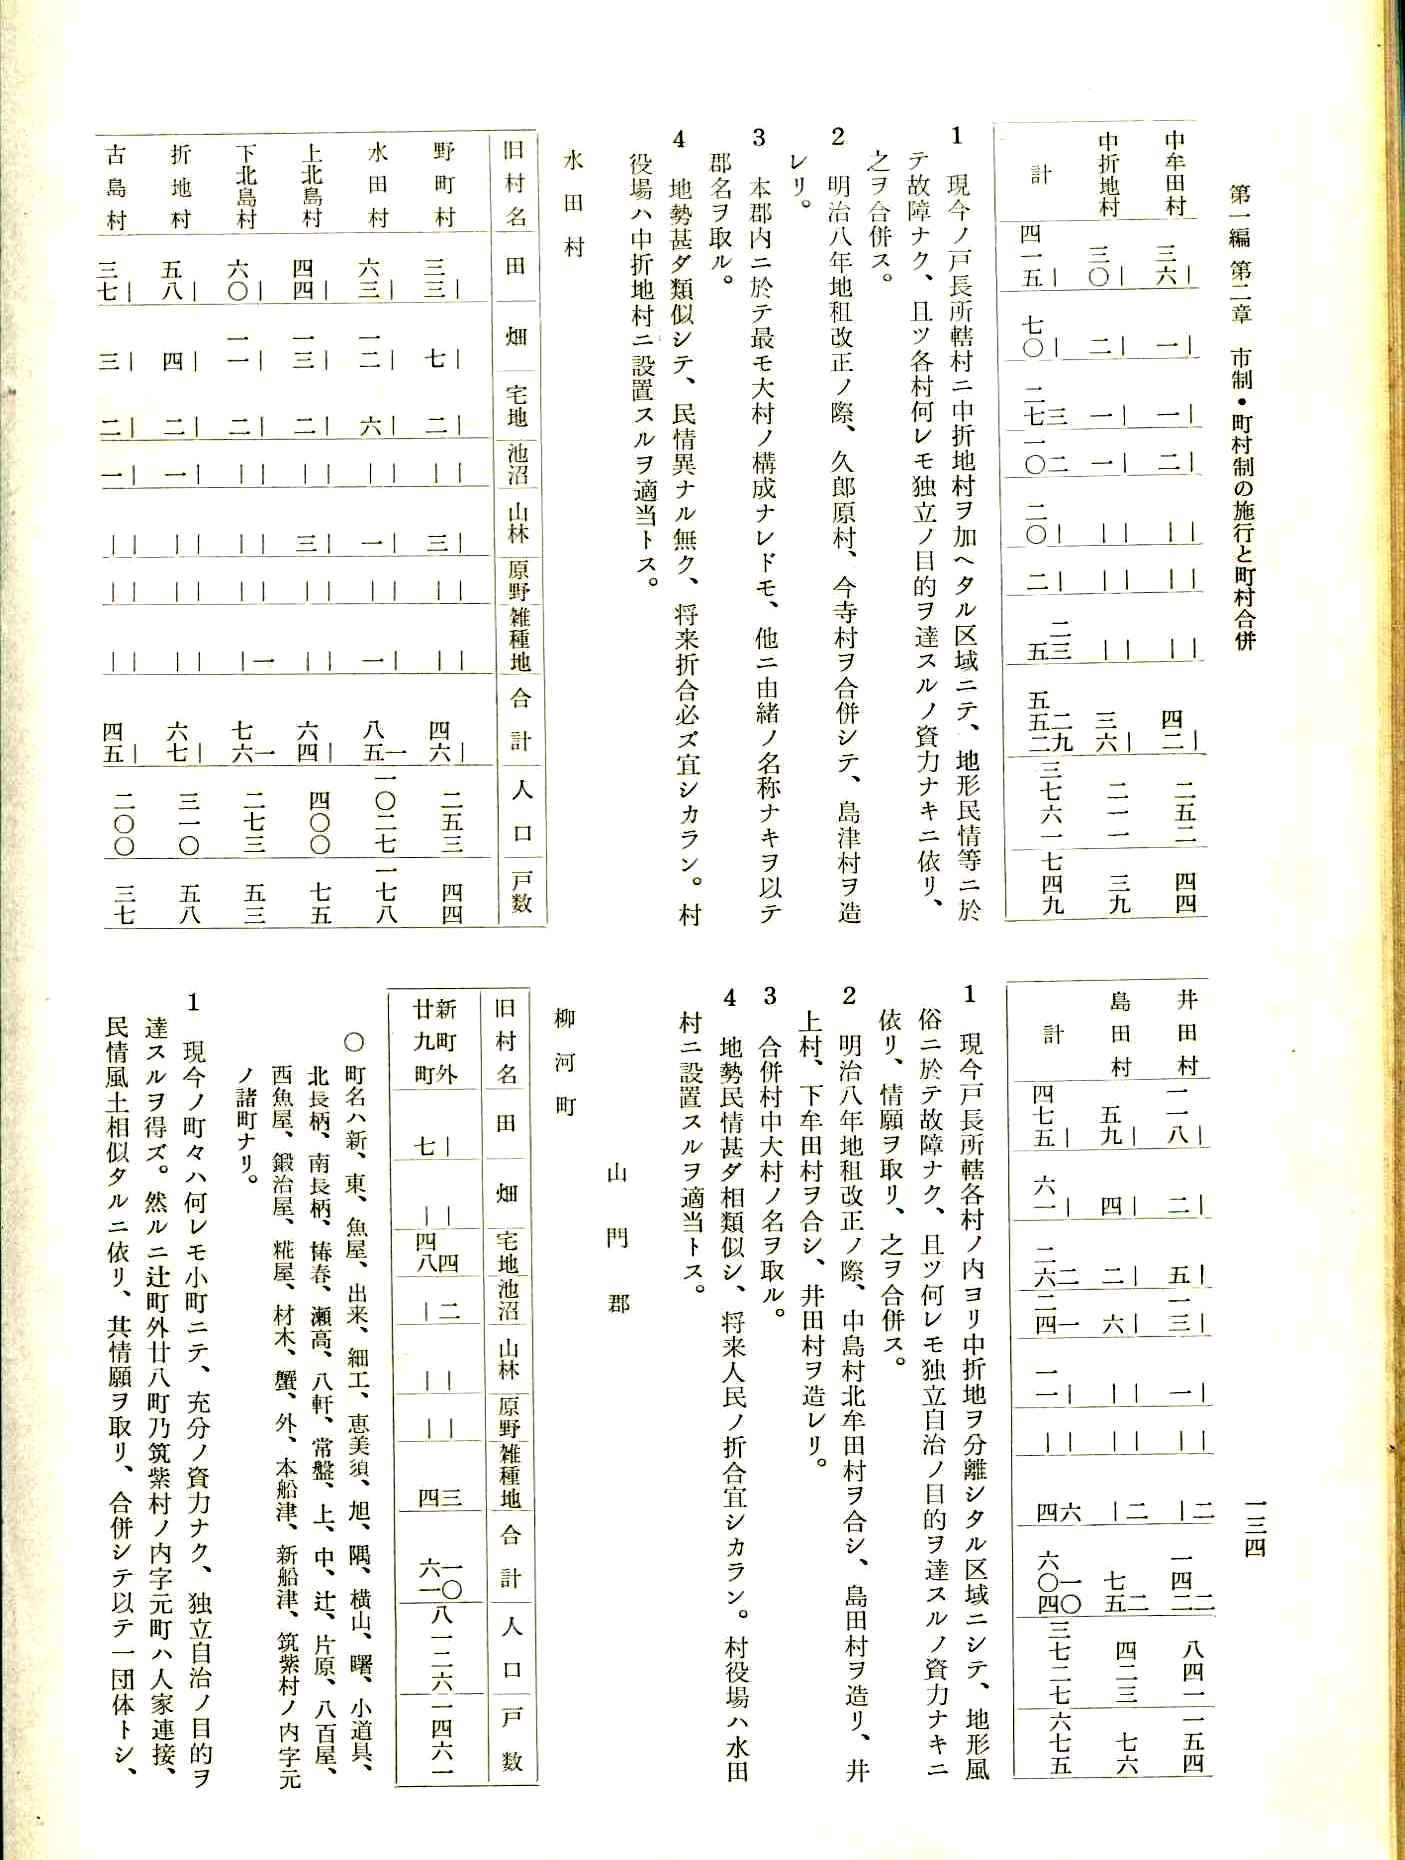 第一編 第二章 市制・町村制の施行と町村合併
一三四
中牟田村 三六│ 一│ 一│ 二│ ││ ││ ││ 四二│ 二五二 四四
中折地村 三〇│ 二│ 一│ 一│ ││ ││ ││ 三六│ 二一一 三九
計 四一五│ 七〇│ 二七三 一〇二 二〇│ 二│ 二五三 五五二二九 三七六一 七四九
1 現今ノ戸長所轄村ニ中折地村ヲ加ヘタル区域ニテ、地形民情等ニ於
テ故障ナク、且ツ各村何レモ独立ノ目的ヲ達スルノ資力ナキニ依リ、
之ヲ合併ス。
2 明治八年地租改正ノ際、久郎原村、今寺村ヲ合併シテ、島津村ヲ造
レリ。
3 本郡内ニ於テ最モ大村ノ構成ナレドモ、他ニ由緒ノ名称ナキヲ以テ
郡名ヲ取ル。
4 地勢甚ダ類似シテ、民情異ナル無ク、将来折合必ズ宜シカラン。村
役場ハ中折地村ニ設置スルヲ適当トス。
水田村
旧村名 田 畑 宅地 池沼 山林 原野 雑種地 合計 人口 戸数
野町村 三三│ 七│ 二│ ││ 三│ ││ ││ 四六│ 二五三 四四
水田村 六三│ 一二│ 六│ ││ 一│ ││ 一│ 八五一 一〇二七 一七八
上北島村 四四│ 一三│ 二│ ││ 三│ ││ ││ 六四│ 四〇〇 七五
下北島村 六〇│ 一一│ 二│ ││ ││ ││ │一 七六一 二七三 五三
折地村 五八│ 四│ 二│ 一│ ││ ││ ││ 六七│ 三一〇 五八
古島村 三七│ 三│ 二│ 一│ ││ ││ ││ 四五│ 二〇〇 三七
井田村 一一八│ 二│ 五│ 一三│ 一│ ││ │二 一四二二二 八四一 一五四
島田村 五九│ 四│ 二│ 六│ ││ ││ │二 七五二 四二三 七六
計 四七五│ 六一│ 二六二 二四一 一一│ ││ 四六 六〇四一〇 三七二七 六七五
1 現今戸長所轄各村ノ内ヨリ中折地ヲ分離シタル区域ニシテ、地形風
俗ニ於テ故障ナク、且ツ何レモ独立自治ノ目的ヲ達スルノ資力ナキニ
依リ、情願ヲ取リ、之ヲ合併ス。
2 明治八年地租改正ノ際、中島村北牟田村ヲ合シ、島田村ヲ造リ、井
上村、下牟田村ヲ合シ、井田村ヲ造レリ。
3 合併村中大村ノ名ヲ取ル。
4 地勢民情甚ダ相類似シ、将来人民ノ折合宜シカラン。村役場ハ水田
村ニ設置スルヲ適当トス。
山門郡
柳河町
旧村名 田 畑 宅地 池沼 山林 原野 雑種地 合計 人口 戸数
新町外廿九町 七│ ││ 四八四 │二 ││ ││ 四三 六一一〇 八一二六 一四六一
〇町名ハ新、東、魚屋、出来、細工、恵美須、旭、隅、横山、曙、小道具、
北長柄、南長柄、椿春、瀬高、八軒、常盤、上、中、辻、片原、八百屋、
西魚屋、鍛治屋、糀屋、材木、蟹、外、本船津、新船津、筑紫村ノ内字元
ノ諸町ナリ。
1 現今ノ町々ハ何レモ小町ニテ、充分ノ資力ナク、独立自治ノ目的ヲ
達スルヲ得ズ。然ルニ辻町外廿八町乃筑紫村ノ内字元町ハ人家連接、
民情風土相似タルニ依リ、其情願ヲ取リ、合併シテ以テ一団体トシ、